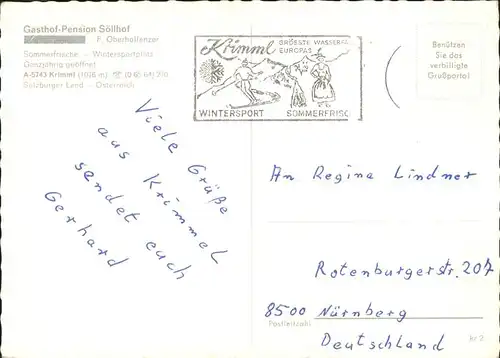 Gasthof-Pension Söllhof
F. Oberhollenzer
Sommerfrische — Wintersportplatz
Ganzjährig geöffnet
A-5743 Krimml (1076 m) ☏ (0 65 64)
Salzburger Land — Österreich
Krimml GRÖSSTE WASSERFÄ
EUROPAS
WINTERSPORT SOMMERFRISC
Benützen
Sie das
verbilligte
Grußporto!
Viele Grüße
aus Krimmel
sendet euch
Gerhard
An Regina Lindner
Rotenburgerstr. 207
8500 Nürnberg
Postleitzahl
Deutschland